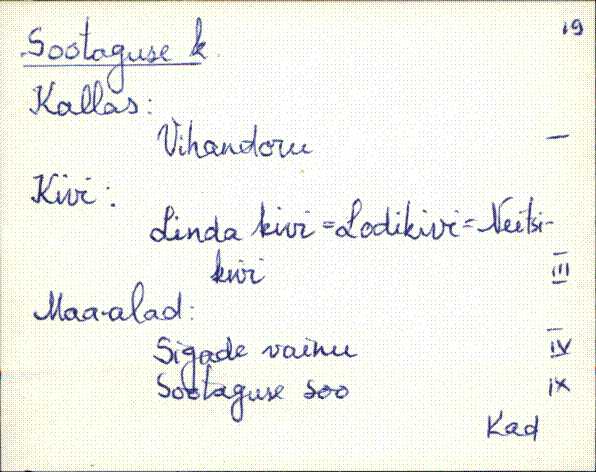 19
Sootaguse k.
Kallas:
Vihandoru —
Kivi:
Linda kivi = Lodikivi = Neitsi-
kivi III
Maa-alad:
Sigade vainu IV
Sootaguse soo IX
Kad